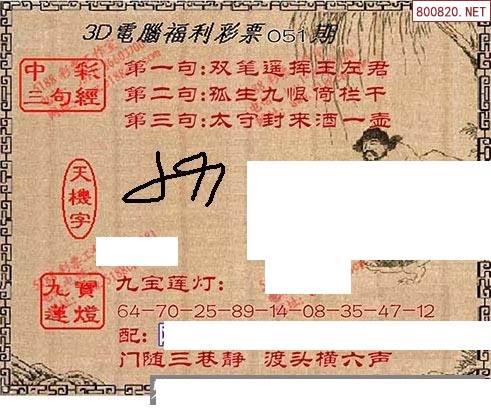 800820.NET
3D電腦福利彩票051期
中彩三句經
第一句:双笔遥挥王左君
第二句:孤生九恨倚栏干
第三句:太守封来酒一壶
天機字
九寶蓮燈
九宝莲灯:
64-70-25-89-14-08-35-47-12
配:
门随三巷静 渡头横六声